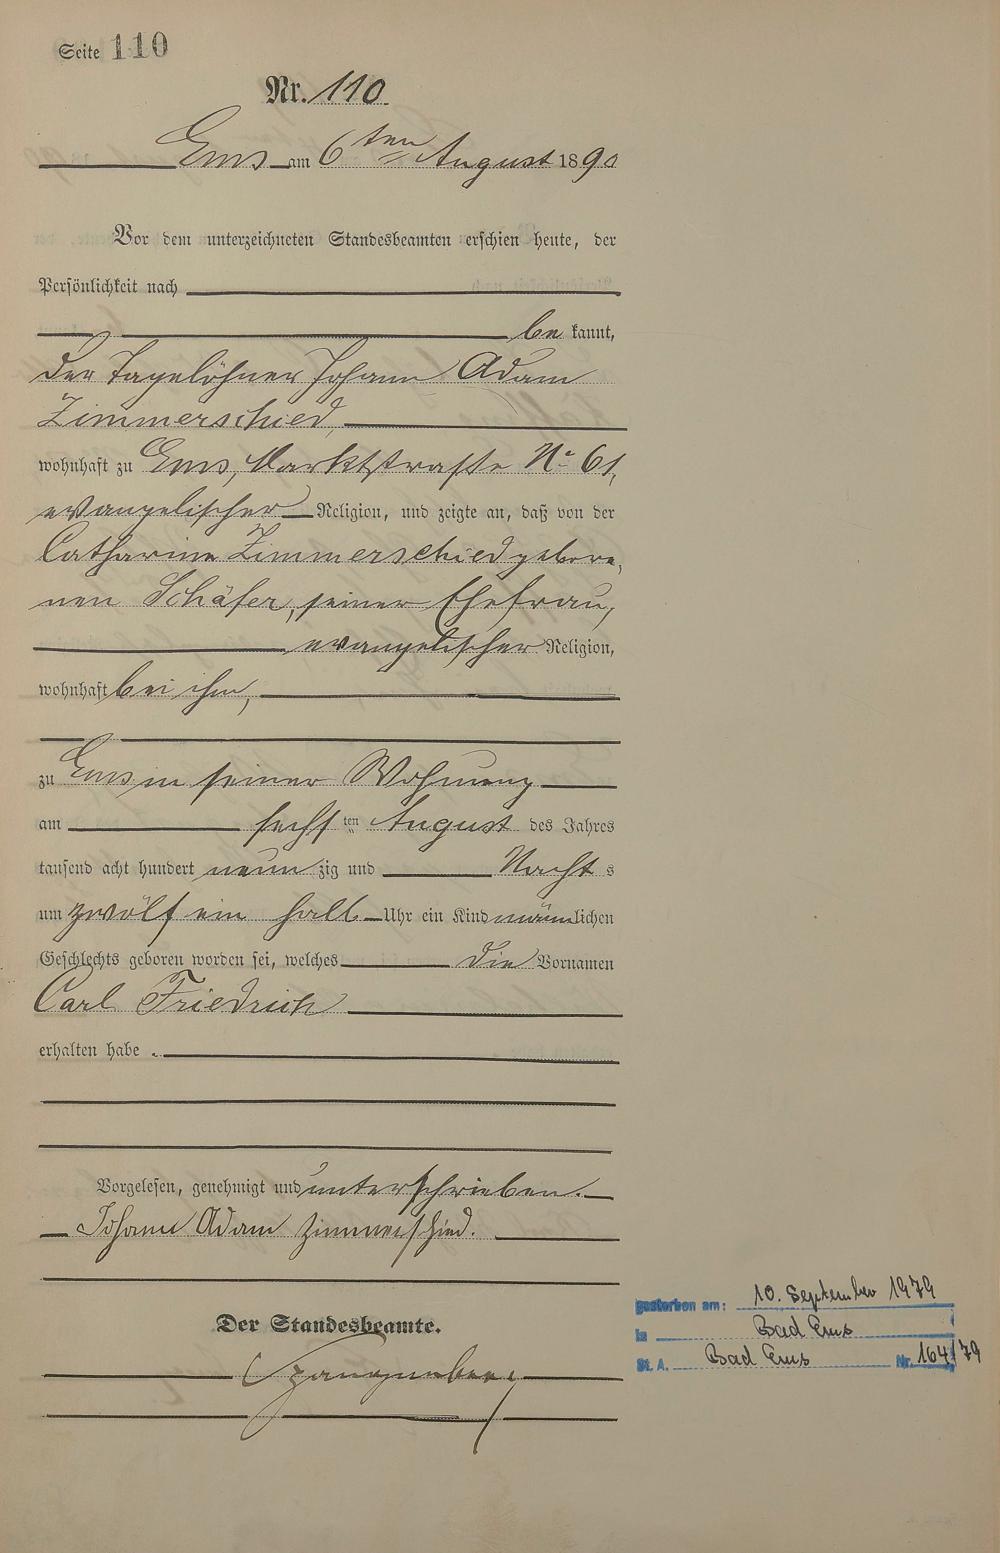 Seite 110
Nr. 110
Ems am 6ten August 1890
Vor dem unterzeichneten Standesbeamten erschien heute, der
Persönlichkeit nach
bekannt,
der Tagelöhner Johann Adam
Zimmerschied,
wohnhaft zu Ems, Marktstraße No 61,
evangelischer Religion, und zeigte an, daß von der
Catharine Zimmerschied gebore,
nen Schäfer, seiner Ehefrau,
evangelischer Religion,
wohnhaft bei ihm,
zu Ems in seiner Wohnung
am sechsten August des Jahres
tausend acht hundert neunzig und Nachts
um zwölf ein halb Uhr ein Kind männlichen
Geschlechts geboren worden sei, welches die Vornamen
Carl Friedrich
erhalten habe.
Vorgelesen, genehmigt und unterschrieben.
Johann Adam Zimmerschied.
Der Standesbeamte.
gestorben am: 10. September 1979
in Bad Ems
St. A. Bad Ems Nr. 164/79